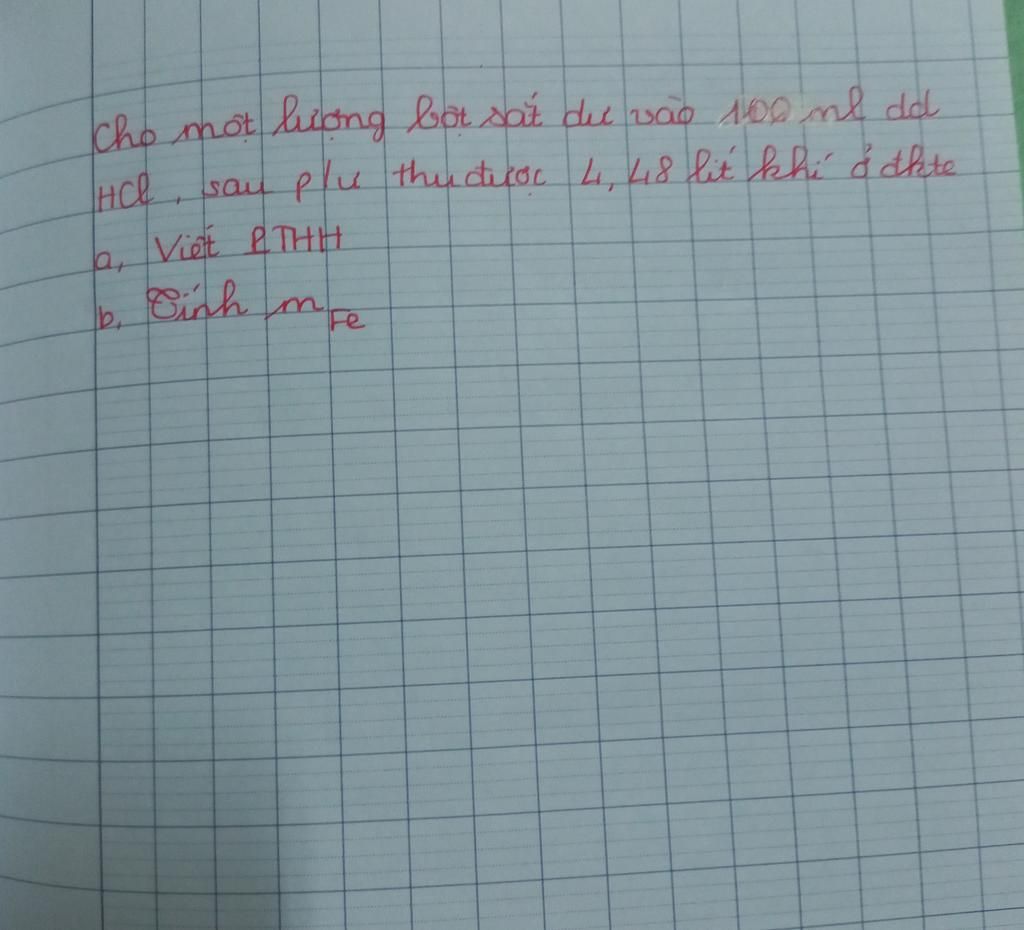 Cho một lượng bột sắt dư vào 100 ml dd
HCl, sau p/ư thu được 4,48 lít khí ở đktc
a, Viết PTHH
b, Tính mFe